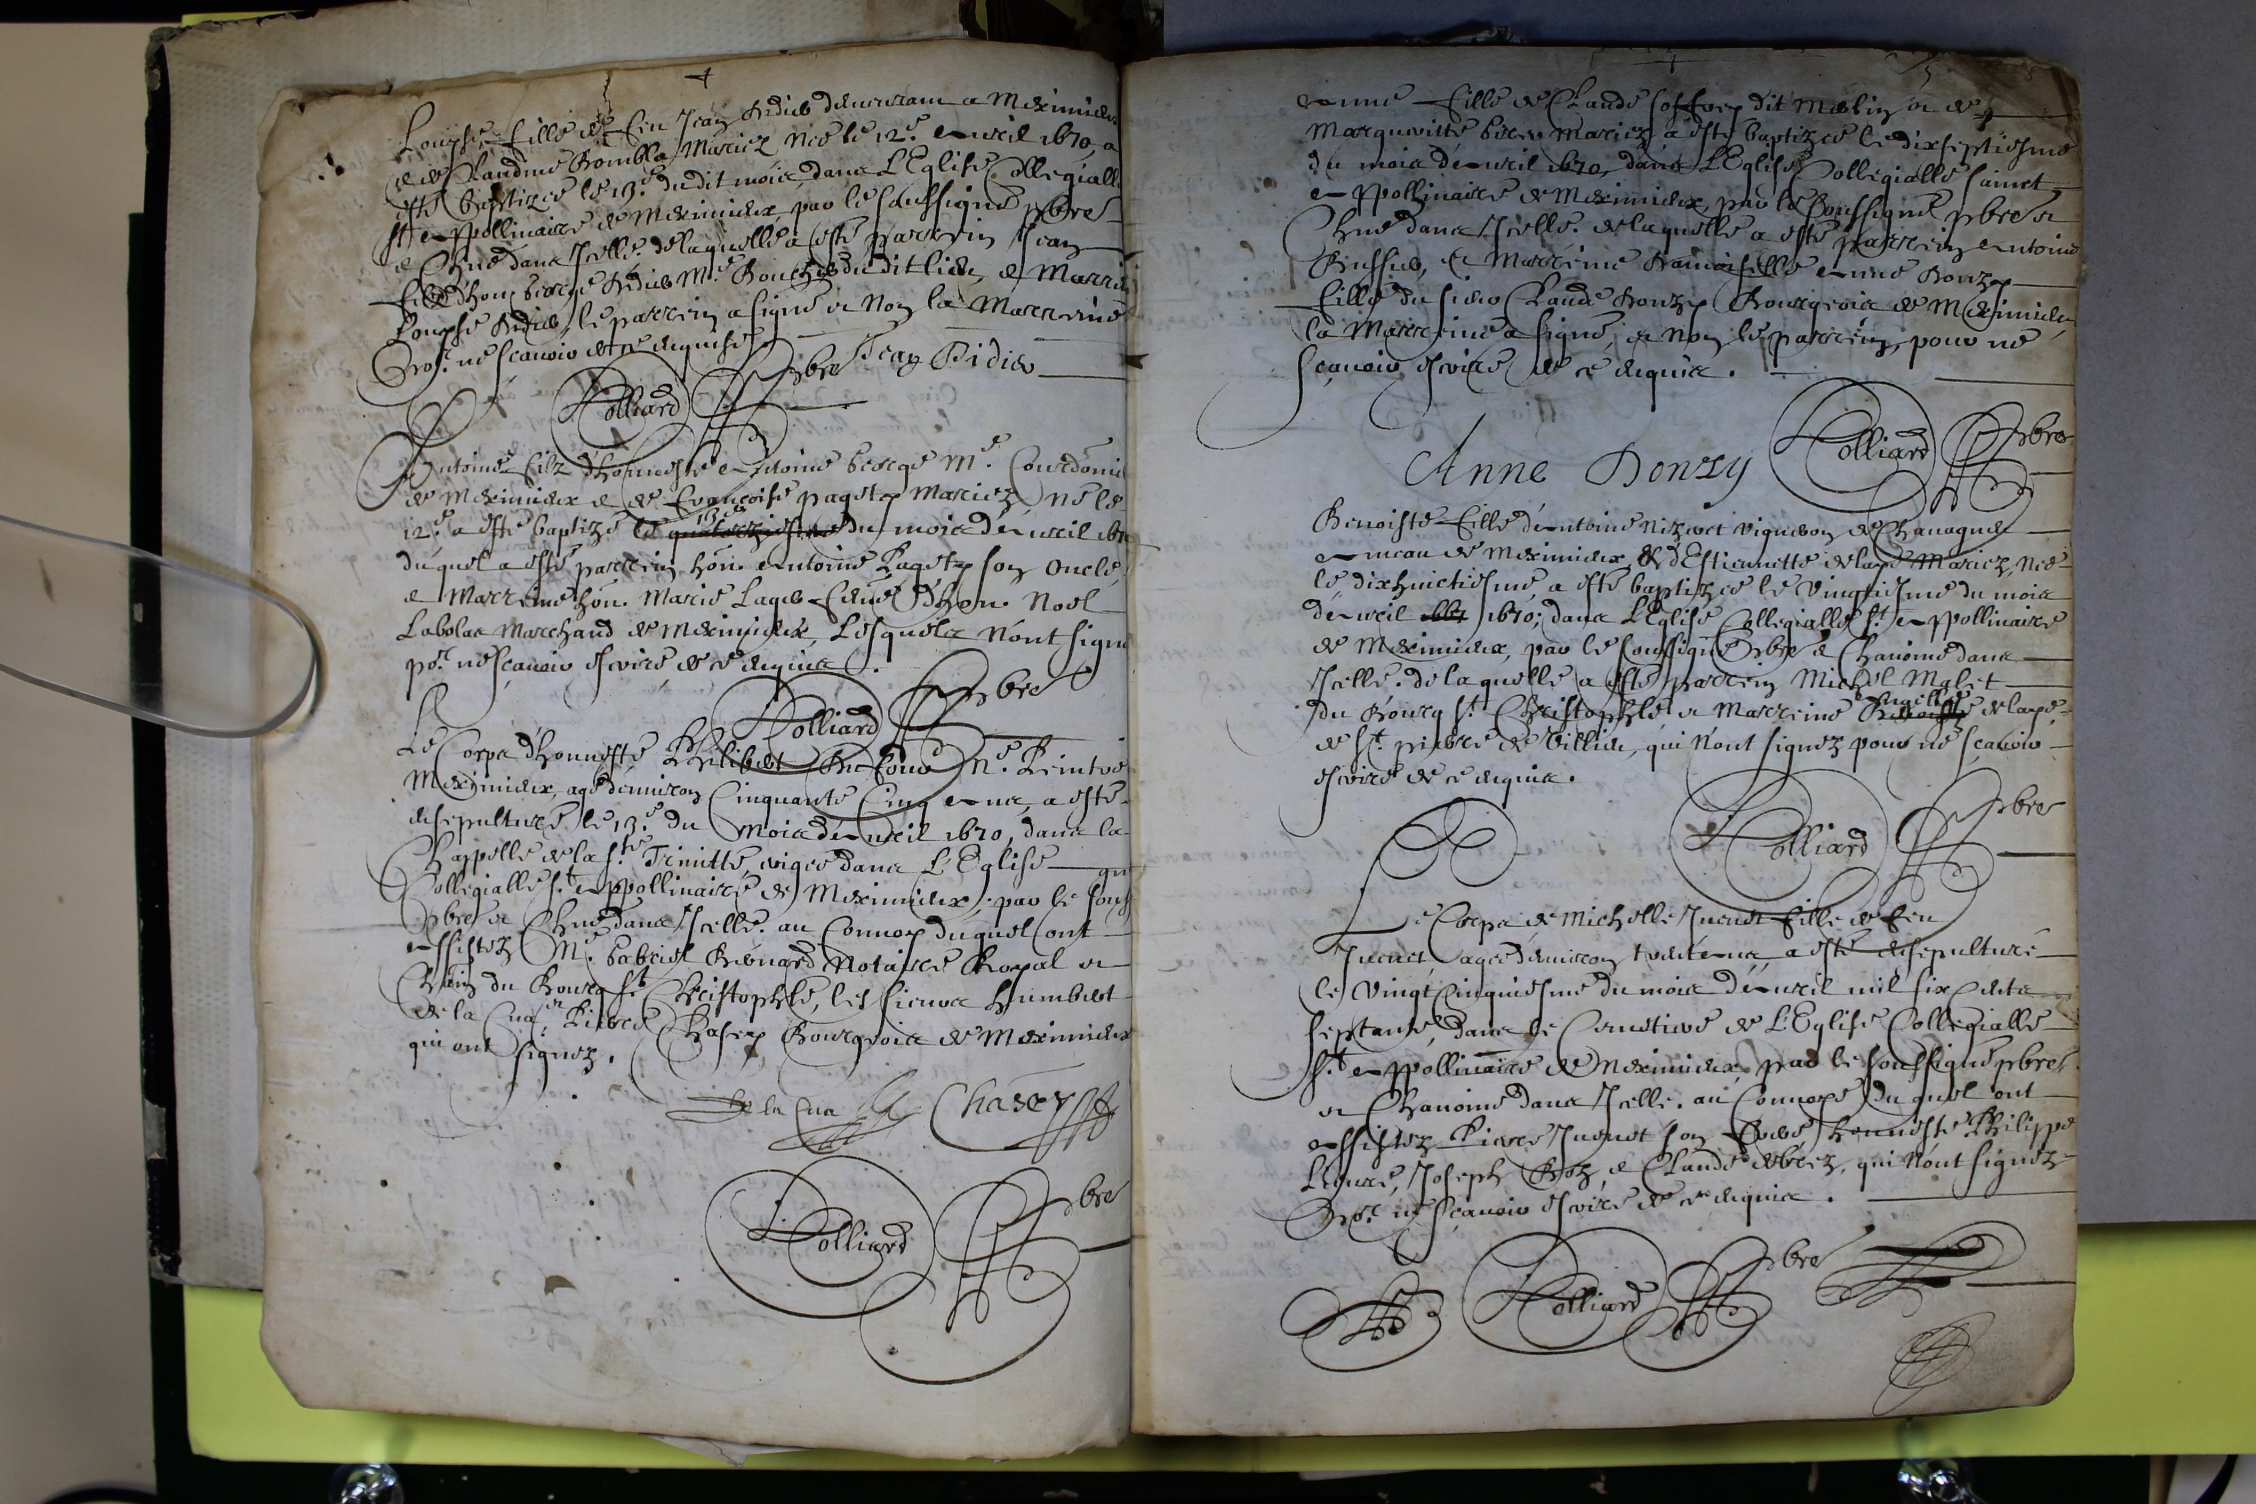 4
Louyse fille de feu Jean Didier demeurant a Meximieux
& de Claudine mariez Née le 12.e Avril 1670, a
esté Baptizée le 13.e du dit mois, dans L'Eglise Collegialle
St Appollinaire de Meximieux, par le soussigné pbre
& Chne dans Icelle. de laquelle a esté parrein Jean
filz d'hon. George Didier M.e du dit lieu, & Marreine
Louyse Didier, le parrein a signé et Non la Marreine
po.r ne sçavoir de ce enquise
Jean Didier
Dolliard pbre
Antoine filz d'honneste Antoine George M.e Courdonnier
de Meximieux & de Françoise pagety Mariez, Né le
12.e a esté baptizé le quatorziesme 13.e du mois d'Avril 1670
duquel a esté parrein hon. Antoine Pagety son Oncle,
& Marreine hon. Marie Lager femme d'hon. Noel
Labolas Marchand de Meximieux, Lesquels N'ont signé
po.r ne sçavoir escrire de ce enquis.
Dolliard pbre
Le Corps d'honneste Philibert M.e Peintre
Meximieux, agé d'environ Cinquante Cinq Ans, a esté
ensepulturé le 13.e du Mois d'Avril 1670, dans la
Chappelle de la S.te Trinitté, erigée dans L'Eglise
Collegialle S.t Appollinaire de Meximieux, par le sous
pbre et Chne dans Icelle. au Convoy duquel ont
Assistez M.e Gabriel Bernard Notaire Royal et
du Bourg St Christophle, les sieurs Humbert
de la Cua, Pierre Chasey Bourgeois de Meximieux
qui ont signez.
de la Cua Chasey
Dolliard pbre
5
Anne fille de Claude dit Merlin et de
Margueritte mariez a esté baptizée le dixseptiesme
du mois d'Avril 1670, dans L'Eglise Collegialle Sainct
Appollinaire de Meximieux, par le soussigné pbre et
Chne dans Icelle. de laquelle a esté parrein Antoine
et Marreine Damoiselle Anne Donzy
fille du sieur Claude Donzy Bourgeois de Meximieux
la Marreine a signé, et Non le parrein, pour ne
sçavoir escrire de ce enquis.
Anne Donzy
Dolliard pbre
Benoiste fille d'Antoine vigneron de Chavagneu
Ameau de Meximieux, & d'Estiennette delape Mariez, Née
le dixhuictiesme, a esté baptizée le Vingtiesme du mois
d'Avril 1670; dans L'Eglise Collegialle S.t Appollinaire
de Meximieux, par le soussigné pbre & Chanoine dans
Icelle. de laquelle a esté parrein Michel Malet
du Bourg S.t Christophle et Marreine delape
de S.t de Villieu, qui N'ont signez pour ne sçavoir
escrire de ce enquis.
Dolliard pbre
Le Corps de Michelle Juenet fille de feu
Juenet, agée d'environ trente Ans, a esté ensepulturé
le Vingtcinquiesme du mois d'Avril mil six cents
septante, dans le Cemetiere de L'Eglise Collegialle
S.t Appollinaire de Meximieux, par le soussigné pbre
et Chanoine dans Icelle. au Convoye duquel ont
Assistez Pierre Juenet son frere, honneste Philippe
Joseph Roz, & Claude qui N'ont signez
po.r ne sçavoir escrire de ce enquis.
Dolliard pbre